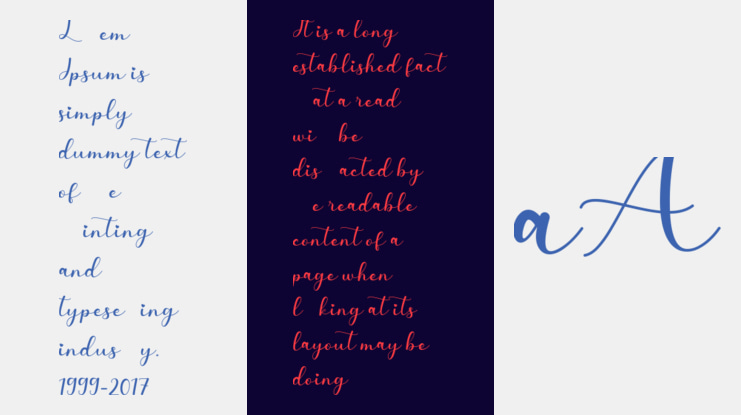 L em
Ipsum is
simply
dummy text
of e
inting
and
typese ing
indus y.
1999-2017
It is a long
established fact
at a read
wi be
dis acted by
e readable
content of a
page when
l king at its
layout may be
doing
aA